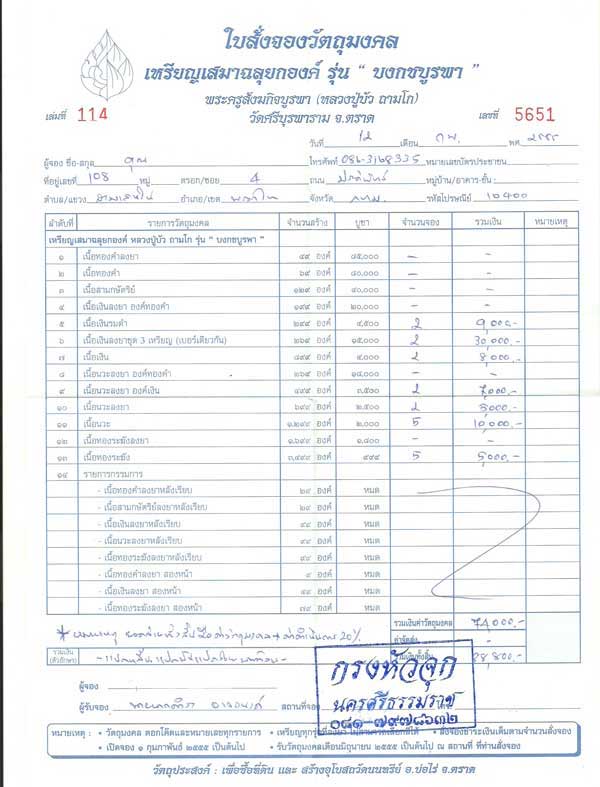 ใบสั่งจองวัตถุมงคล
เหรียญเสมาฉลุยกองค์ รุ่น “ บงกชบูรพา ”
พระครูสังฆกิจบูรพา (หลวงปู่บัว ถามโก)
วัดศรีบุรพาราม จ.ตราด
เล่มที่ 114 เลขที่ 5651
วันที่ 12 เดือน กพ. พศ. ๒๕๕๕
ผู้จอง ชื่อ-สกุล คุณ โทรศัพท์ 086-3168335 หมายเลขบัตรประชาชน
ที่อยู่เลขที่ 108 หมู่ ตรอก/ซอย 4 ถนน หมู่บ้าน/อาคาร-ชั้น
ตำบล/แขวง สามเสนใน อำเภอ/เขต พญาไท จังหวัด กทม. รหัสไปรษณีย์ 10400
ลำดับที่ รายการวัตถุมงคล จำนวนสร้าง บูชา จำนวนจอง รวมเงิน หมายเหตุ
เหรียญเสมาฉลุยกองค์ หลวงปู่บัว ถามโก รุ่น “ บงกชบูรพา ”
๑ เนื้อทองคำลงยา ๔๙ องค์ ๔๕,๐๐๐ - -
๒ เนื้อทองคำ ๖๙ องค์ ๔๐,๐๐๐ - -
๓ เนื้อสามกษัตริย์ ๑๒๙ องค์ ๔๐,๐๐๐ - -
๔ เนื้อเงินลงยา องค์ทองคำ ๑๙๙ องค์ ๒๐,๐๐๐ - -
๕ เนื้อเงินรมดำ ๒๙๙ องค์ ๔,๕๐๐ 2 9,000.-
๖ เนื้อเงินลงยาชุด 3 เหรียญ (เบอร์เดียวกัน) ๒๖๙ องค์ ๑๕,๐๐๐ 2 30,000.-
๗ เนื้อเงิน ๘๙๙ องค์ ๔,๐๐๐ 2 8,000.-
๘ เนื้อนวะลงยา องค์ทองคำ ๒๖๙ องค์ ๑๘,๐๐๐ - -
๙ เนื้อนวะลงยา องค์เงิน ๔๙๙ องค์ ๓,๕๐๐ 2 7,000.-
๑๐ เนื้อนวะลงยา ๖๙๙ องค์ ๒,๕๐๐ 2 5,000.-
๑๑ เนื้อนวะ ๑,๒๙๙ องค์ ๒,๐๐๐ 5 10,000.-
๑๒ เนื้อทองระฆังลงยา ๑,๖๙๙ องค์ ๑,๘๐๐ - -
๑๓ เนื้อทองระฆัง ๓,๔๙๙ องค์ ๙๙๙ 5 5,000.-
๑๔ รายการกรรมการ
- เนื้อทองคำลงยาหลังเรียบ ๒๙ องค์ หมด
- เนื้อสามกษัตริย์ลงยาหลังเรียบ ๒๙ องค์ หมด
- เนื้อเงินลงยาหลังเรียบ ๙๙ องค์ หมด
- เนื้อนวะลงยาหลังเรียบ ๙๙ องค์ หมด
- เนื้อทองระฆังลงยาหลังเรียบ ๙๙ องค์ หมด
- เนื้อทองคำลงยา สองหน้า ๙ องค์ หมด
- เนื้อเงินลงยา สองหน้า ๔๙ องค์ หมด
- เนื้อทองระฆังลงยา สองหน้า ๗๙ องค์ หมด
รวมเงินค่าวัตถุมงคล 74,000.-
* หมายเหตุ 20%
ค่าจัดส่ง -
รวมเงิน (ตัวอักษร) รวมเงินทั้งสิ้น 88,800.-
กรุงหัวจุก
นครศรีธรรมราช
๐๘๑-๗๙๗๘๖๓๒
ผู้จอง
ผู้รับจอง สถานที่จอง
หมายเหตุ : • วัตถุมงคล ตอกโค๊ดและหมายเลขทุกรายการ • เหรียญทุกรุ่นที่ลงยา ไม่สามารถเลือกสีได้ • สั่งจองชำระเงินเต็มตามจำนวนสั่งจอง
• เปิดจอง ๑ กุมภาพันธ์ ๒๕๕๕ เป็นต้นไป • รับวัตถุมงคลเดือนมิถุนายน ๒๕๕๕ เป็นต้นไป ณ สถานที่ ที่ท่านสั่งจอง
วัตถุประสงค์ : เพื่อซื้อที่ดิน และ สร้างอุโบสถวัดนนทรีย์ อ.บ่อไร่ จ.ตราด